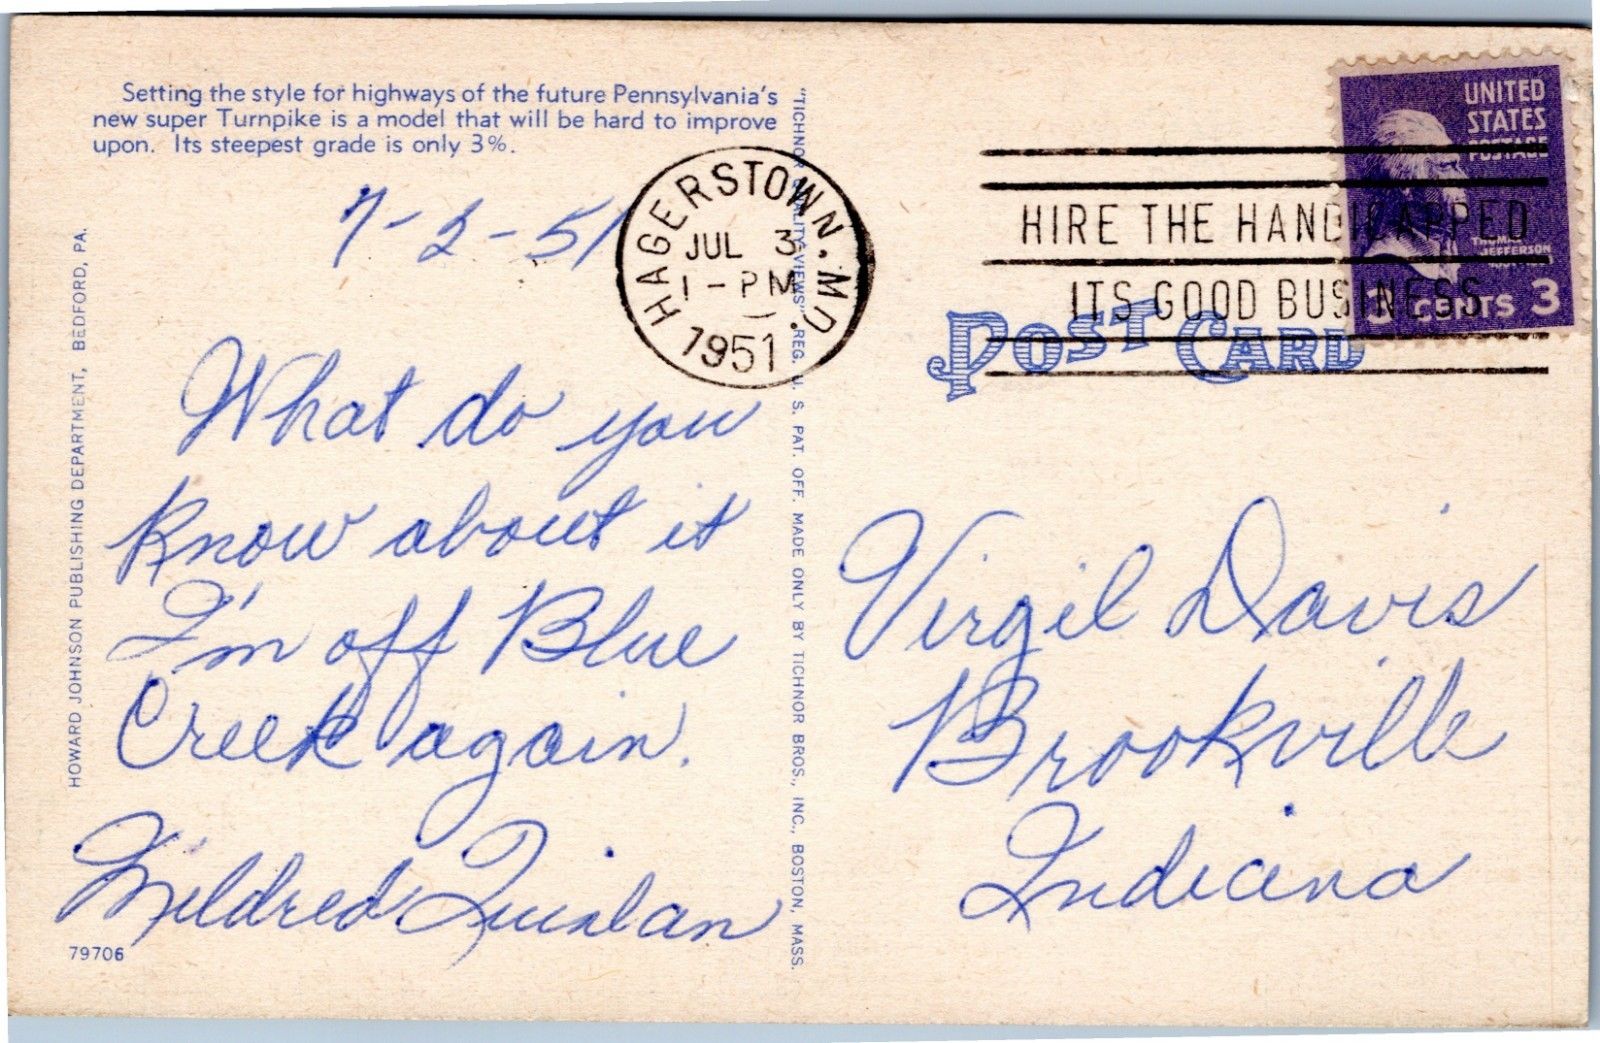 Setting the style for highways of the future Pennsylvania's
new super Turnpike is a model that will be hard to improve
upon. Its steepest grade is only 3%.
7-2-51
What do you
know about it
I'm off Blue
Creek again.
Mildred Quinlan
79706
HOWARD JOHNSON PUBLISHING DEPARTMENT, BEDFORD, PA.
"TICHNOR QUALITY VIEWS" REG. U. S. PAT. OFF. MADE ONLY BY TICHNOR BROS., INC., BOSTON, MASS.
HAGERSTOWN, MD.
JUL 3
1 - PM
1951
HIRE THE HANDICAPPED
ITS GOOD BUSINESS
UNITED
STATES
POSTAGE
THOMAS
JEFFERSON
3 CENTS 3
POST CARD
Virgil Davis
Brookville
Indiana